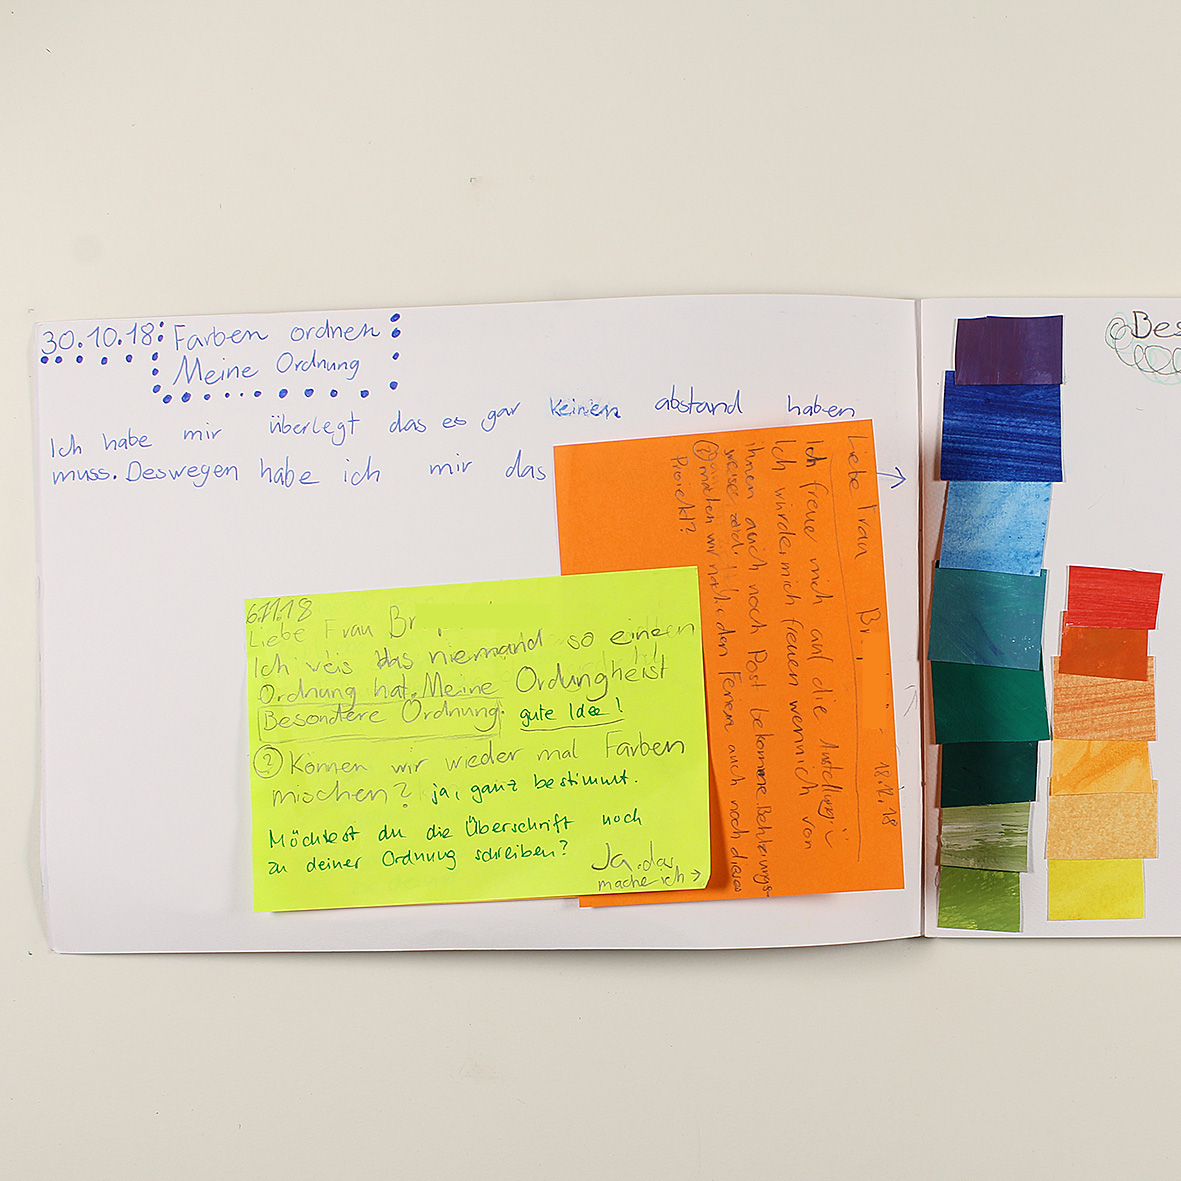 30.10.18: Farben ordnen
Meine Ordnung
Ich habe mir überlegt das es gar keinen abstand haben
muss. Deswegen habe ich mir das
6.11.18
Liebe Frau Br
Ich veis das niemand so einen
Ordnung hat. Meine Ordungheist
Besondere Ordnung. gute Idee!
? Können wir wieder mal Farben
mischen? ja, ganz bestimmt.
Möchtest du die Überschrift noch
zu deiner Ordnung schreiben?
Ja. das
mache ich →
18.12.18
Liebe Frau Br
Ich freue mich auf die
Ich würde mich freuen wennich von
ihnen auch noch Post bekomme.
machen wir nach den Ferien auch noch dieses
Projekt?
Bes